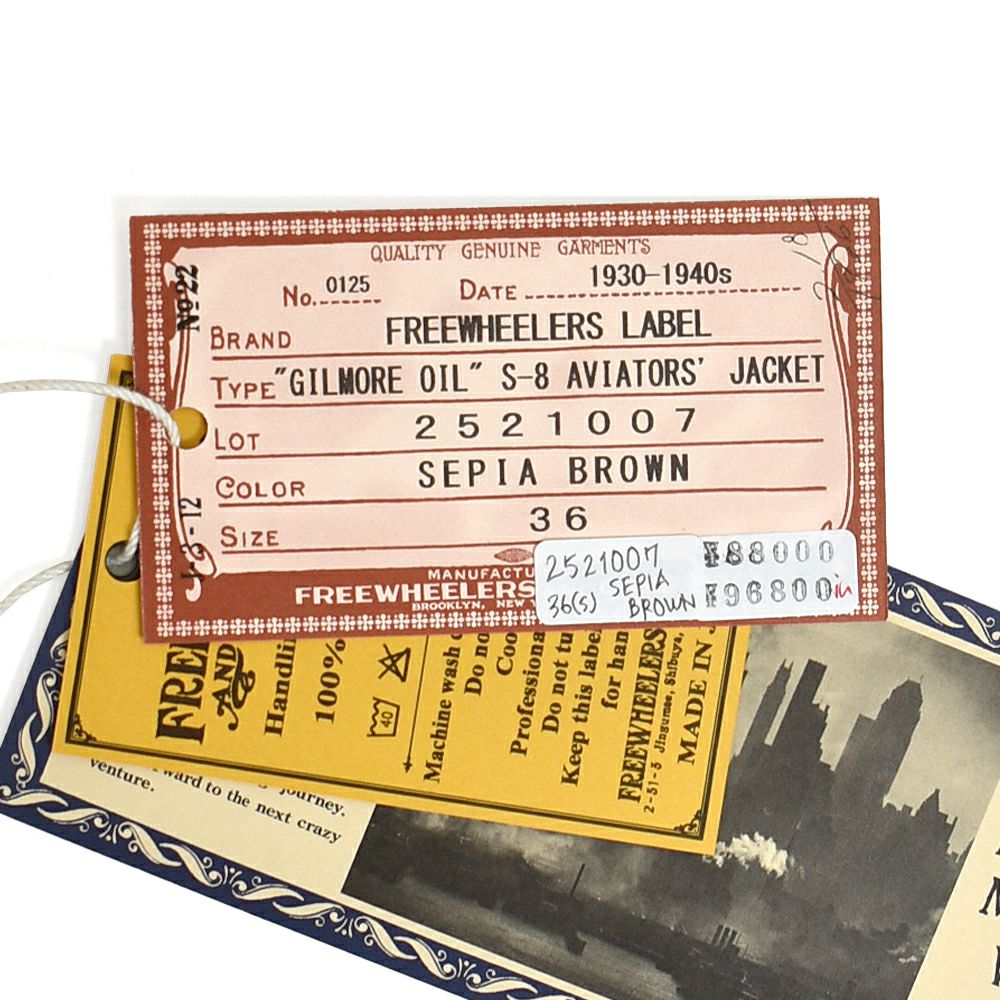 QUALITY GENUINE GARMENTS
No. 0125 DATE 1930-1940s
No 22
BRAND FREEWHEELERS LABEL
TYPE "GILMORE OIL" S-8 AVIATORS' JACKET
LOT 2521007
COLOR SEPIA BROWN
SIZE 36
J-3-12
MANUFACTU
FREEWHEELERS
BROOKLYN, NEW Y
2521007
36(S) SEPIA BROWN
¥88000
¥96800 in
FREE
AND
Handli
100%
40
Machine wash
Do no
Coo
Professiona
Do not tu
Keep this label
for han
FREEWHEELERS
2-51-3 Jingumae, Shibuya,
MADE IN J
journey.
ward to the next crazy
venture.